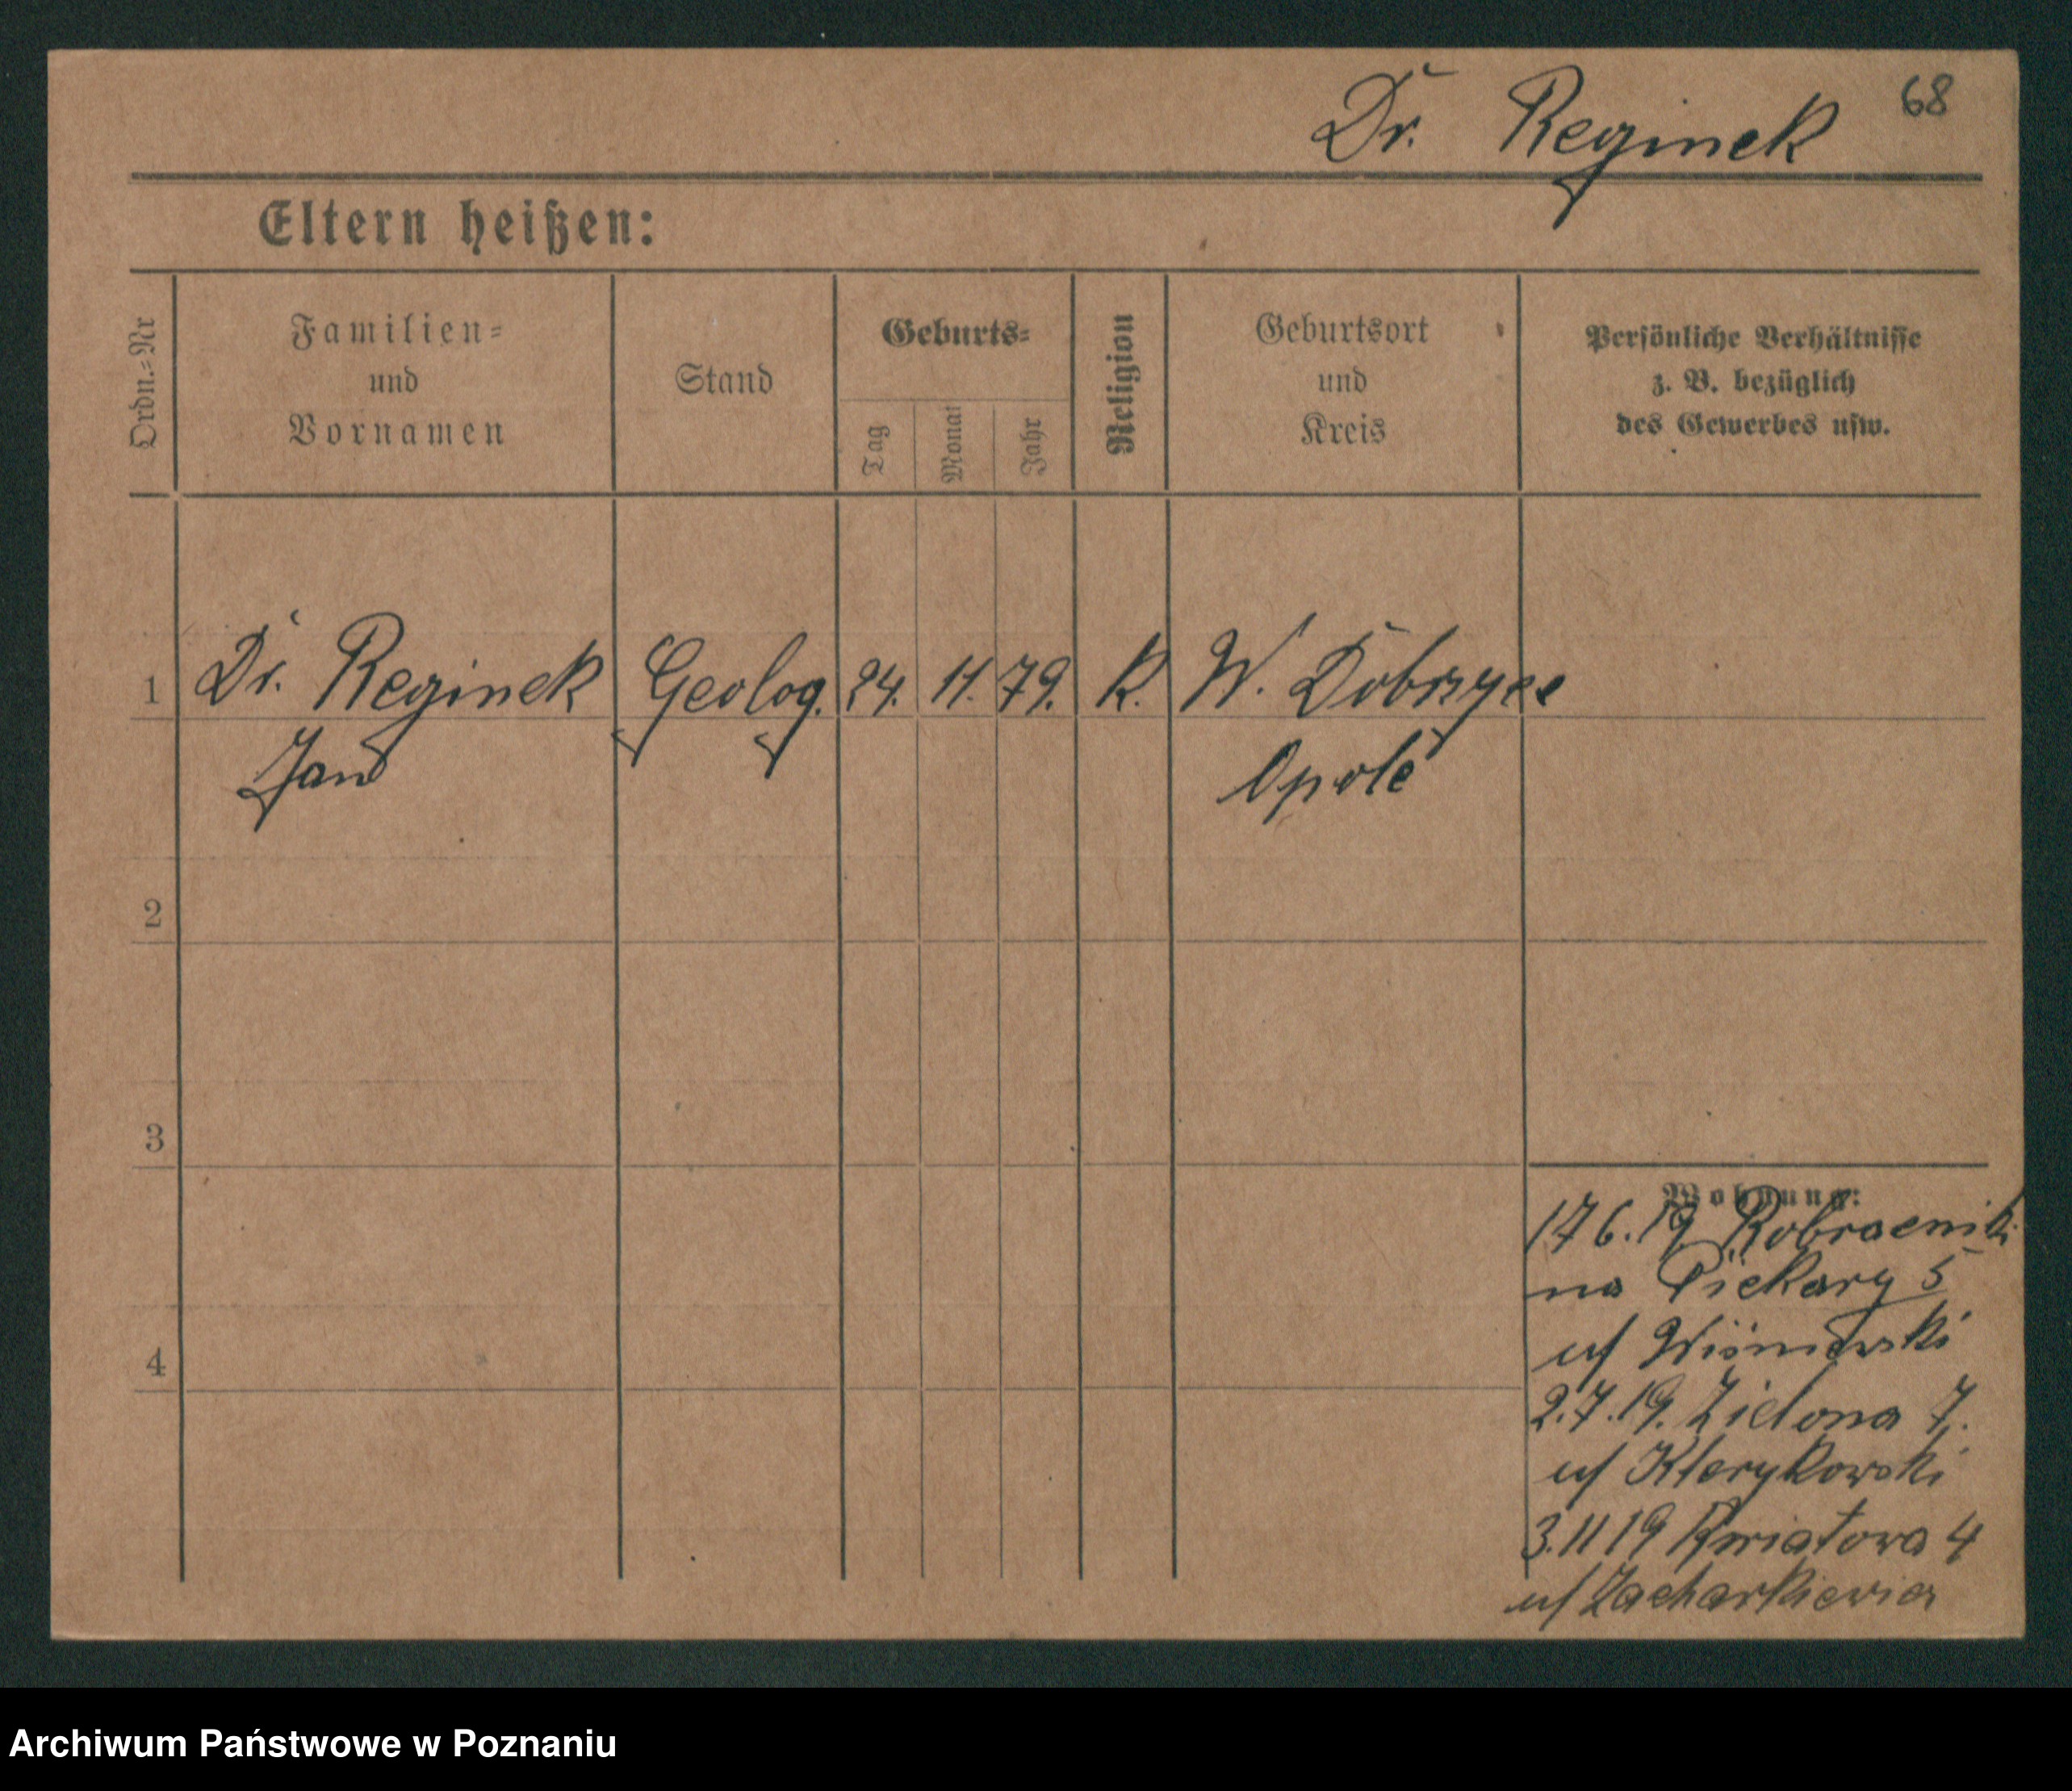 Dr. Reginek 68
Eltern heißen:
Ordn.=Nr
Familien=
und
Vornamen
Stand
Geburts=
Tag
Monat
Jahr
Religion
Geburtsort
und
Kreis
Persönliche Verhältnisse
z. B. bezüglich
des Gewerbes usw.
1 Dr. Reginek Geolog. 24. 11. 79. K. W. Dobrzyce
Jan Opole
2
3
4
Wohnung:
17 6. 19
na Piekary 5
u/ Wiśniewski
2.7.19. Zielona 7.
u/ Klerykowski
3.11 19 Kwiatowa 4
u/ Zacharkiewicz
Archiwum Państwowe w Poznaniu